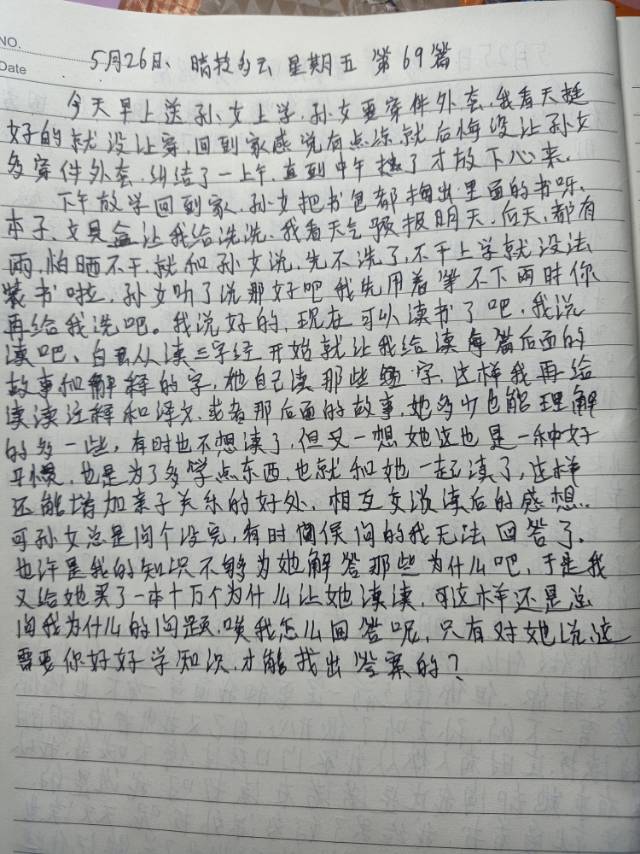 NO.
Date
5月26日、晴转多云 星期五 第69篇
今天早上送孙女上学,孙女要穿件外套,我看天挺
好的就没让穿,回到家感觉有点凉就后悔没让孙女
多穿件外套,纠结了一上午,直到中午热了才放下心来.
下午放学回到家,孙女把书包都掏出里面的书呀、
本子、文具盒让我给洗洗.我看天气预报明天,后天,都有
雨,怕晒不干,就和孙女说,先不洗了,不干上学就没法
装书啦,孙女听了说那好吧我先用着等不下雨时你
再给我洗吧。我说好的,现在可以读书了吧,我说
读吧、自从读三字经开始就让我给读每篇后面的
故事和解释的字,她自己读那些字,这样我再给
读读注释和译文.或者那后面的故事,她多少也能理解
的多一些,有时也不想读了,但又一想她这也是一种好
习惯,也是为了多学点东西,也就和她一起读了,这样
还能增加亲子关系的好处,相互交谈读后的感想.
可孙女总是问个没完,有时候问的我无法回答了.
也许是我的知识不够为她解答那些为什么吧,于是我
又给她买了一本十万个为什么让她读读,可这样还是总
问我为什么的问题,唉我怎么回答呢,只有对她说,这
需要你好好学知识,才能找出答案的?